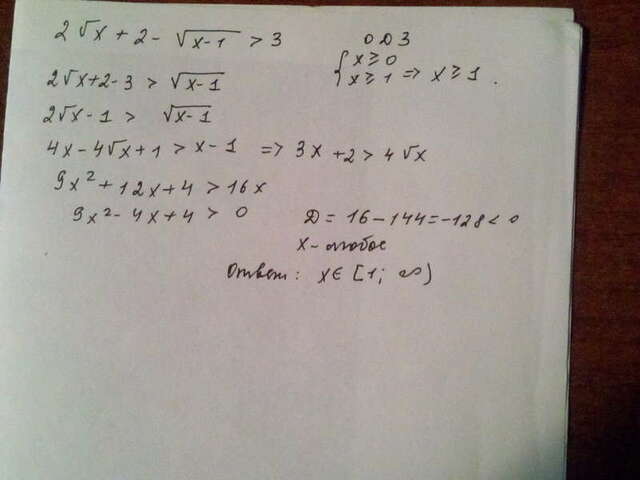 2√x + 2 - √x-1 > 3
ОДЗ
{x ≥ 0
x ≥ 1 => x ≥ 1.
2√x+2-3 > √x-1
2√x-1 > √x-1
4x-4√x+1 > x-1 => 3x+2 > 4√x
9x²+12x+4 > 16x
9x²-4x+4 > 0 Д = 16-144=-128 < 0
x-любое
Ответ: x∈[1; ∞)